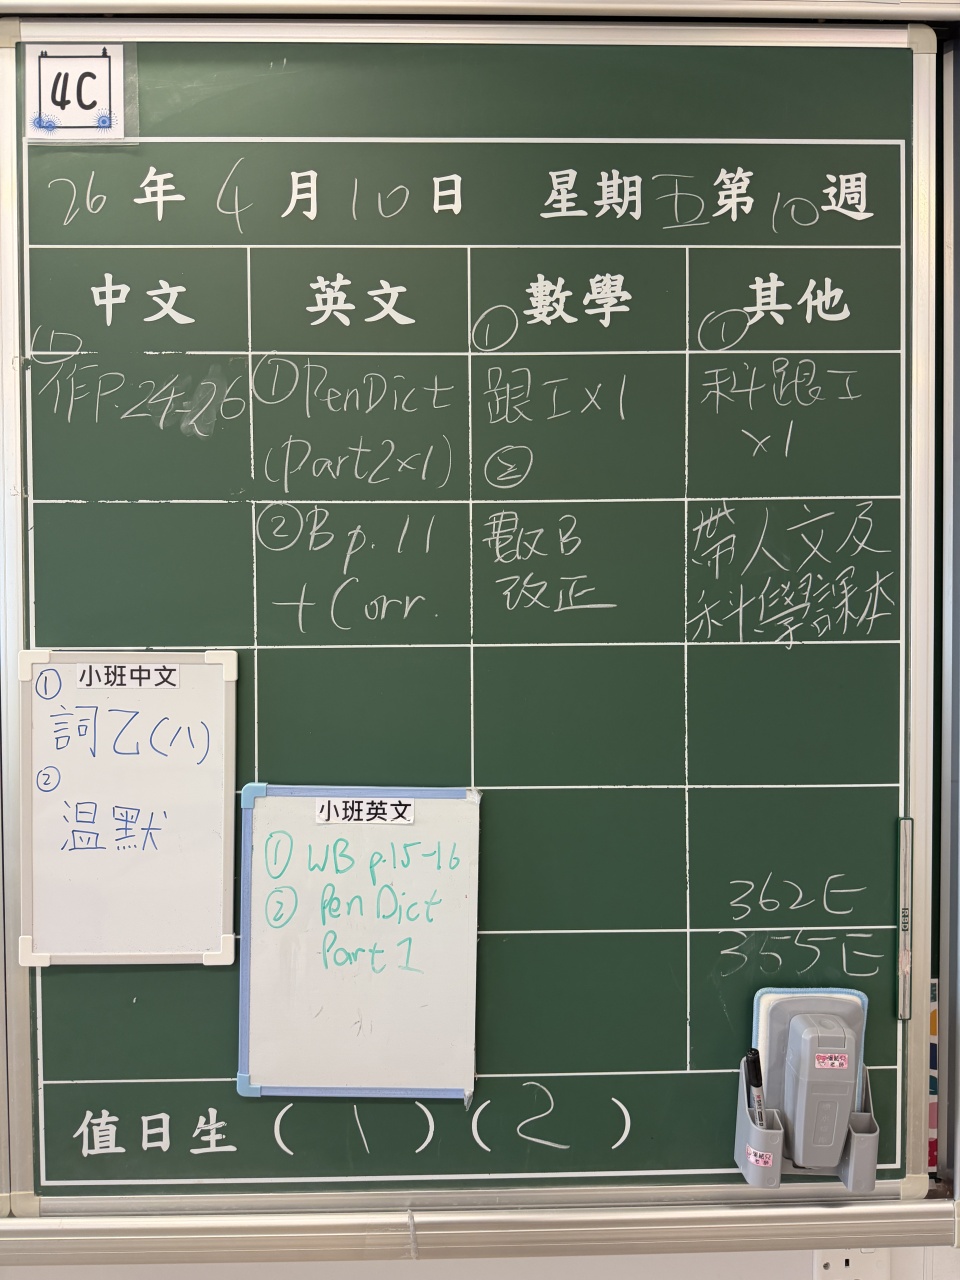 4C
26年4月10日 星期五第10週
中文 英文 數學 其他
① ① 
作P.24-26 ①PenDict 跟工x1 科跟工
(Part2x1) ② x1
②Bp.11 數B 帶人文及
+Corr. 改正 科學課本
小班中文
①
詞乙(八)
②
溫默
小班英文
① WB p.15-16
② Pen Dict
Part 1
362E
355E
值日生(1)(2)